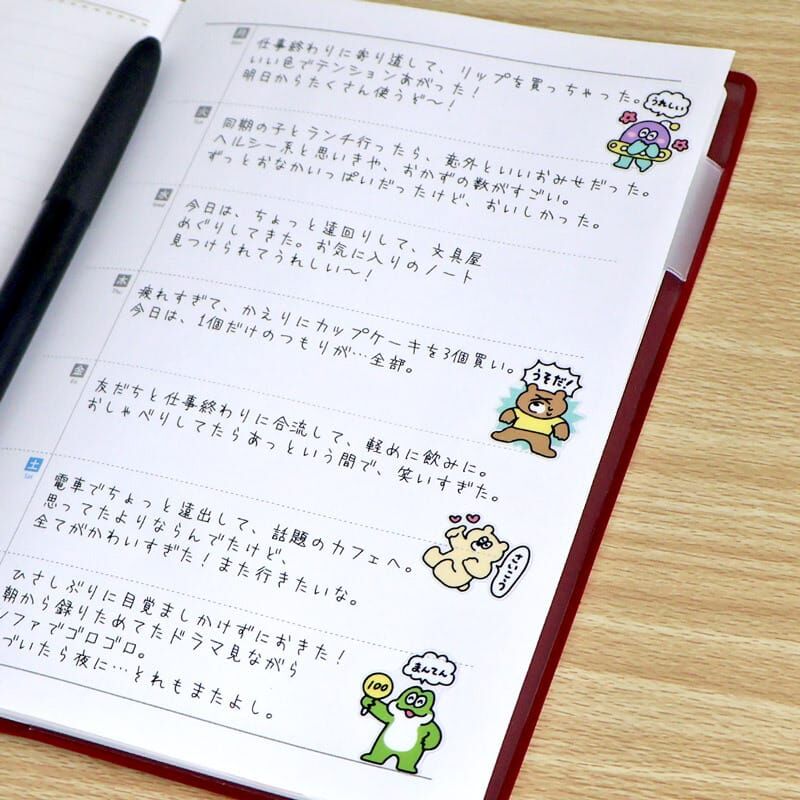 月
仕事終わりに寄り道して、リップを買っちゃった。
いい色でテンションあがった！
明日からたくさん使うぞ〜！
うれしい
火
同期の子とランチ行ったら、意外といいおみせだった。
ヘルシー系と思いきや、おかずの数がすごい。
ずっとおなかいっぱいだったけど、おいしかった。
水
今日は、ちょっと遠回りして、文具屋
めぐりしてきた。お気に入りのノート
見つけられてうれしい〜！
木
Thu
疲れすぎて、かえりにカップケーキを3個買い。
今日は、1個だけのつもりが…全部。
うそだ！
金
Fri
友だちと仕事終わりに合流して、軽めに飲みに。
おしゃべりしてたらあっという間で、笑いすぎた。
土
Sat
電車でちょっと遠出して、話題のカフェへ。
思ってたよりならんでたけど、
全てがかわいすぎた！また行きたいな。
さいこう
ひさしぶりに目覚ましかけずにおきた！
朝から録りためてたドラマ見ながら
ソファでゴロゴロ。
づいたら夜に…それもまたよし。
まんてん
100